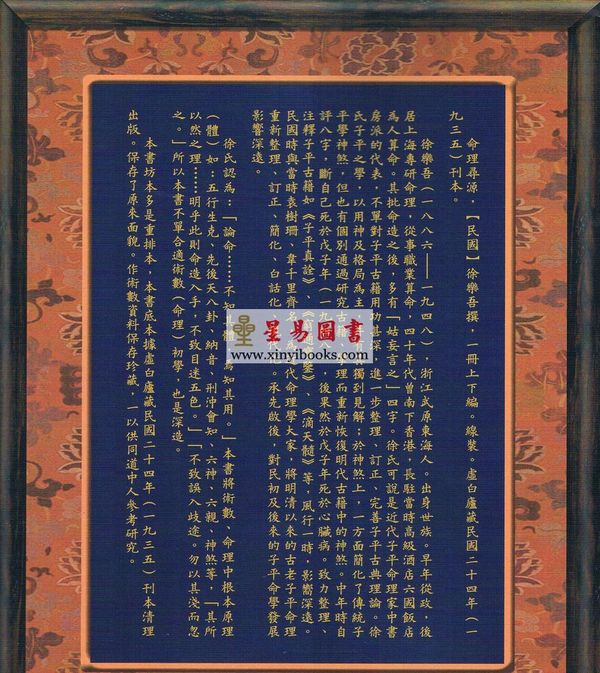 命理尋源，【民國】徐樂吾撰，一冊上下編。線裝。虛白廬藏民國二十四年（一
九三五）刊本。
徐樂吾（一八八六——一九四八），浙江武原東海人。出身世族。早年從政，後
居上海專研命理，從事職業算命，四十年代曾南下香港，長駐當時高級酒店六國飯店
為人算命。其批命造之後，多有「姑妄言之」四字。徐氏可說是近代子平命理家中書
房派的代表，不單對子平古籍用功甚深，進一步整理、訂正、完善子平古典理論。徐
氏子平之學，以用神及格局為主，獨到見解；於神煞上，一方面簡化了傳統子
平學神煞，但也有個別通過研究古籍、理而重新恢復明代古籍中的神煞。中年時自
評八字，斷自己死於戊子年（一九，後果然於戊子年死於心臟病。致力整理、
注釋子平古籍如《子平真詮》、《《滴天髓》等，風行一時，影響深遠。
民國時與當時袁樹珊、韋千里齊名，代命理學大家。將明清以來的古老子平命理
重新整理、訂正、簡化、白話化、代。承先啟後，對民初及後來的子平命學發展
影響深遠。
徐氏認為：「論命……不知其體，焉知其用。」本書將術數、命理中根本原理
（體）如：五行生克、先後天八卦、納音、刑沖會知、六神、六親、神煞等，「其所
以然之理……明乎此則命造入手，不致目迷五色。」「不致誤入歧途。勿以其淺而忽
之。」所以本書不單合適術數（命理）初學，也是深造。
本書坊本多是重排本，本書底本據虛白廬藏民國二十四年（一九三五）刊本清理
出版。保存了原來面貌。作術數資料保存珍藏，一以供同道中人參考研究。
星易圖書
www.xinyibooks.com